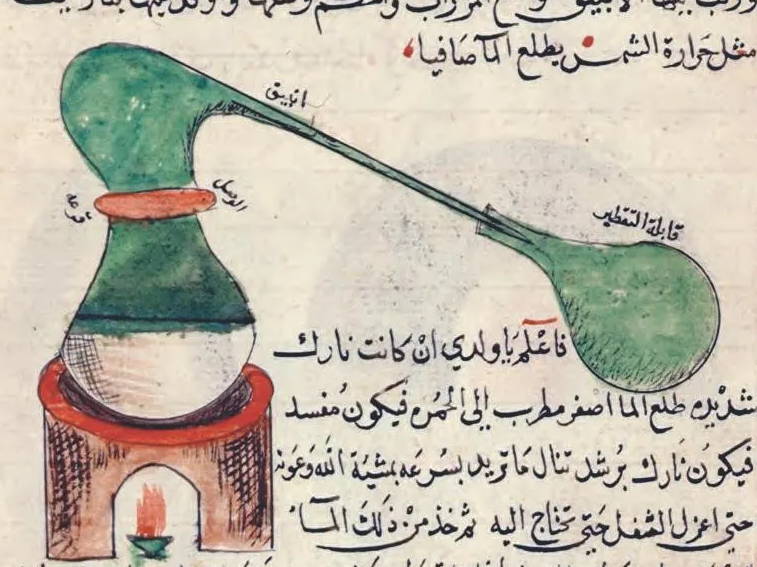 مثل حرارة الشمس يطلع الما صافيا
انبيق
الوصل
قرعه
قابلة التقطير
فاعلم ياولدي ان كانت نارك
شديده طلع الما اصفر مطرب إلى الحمره فيكون مفسد
فيكون نارك برشد تنال ما تريد بسرعه بمشيئة الله وعونه
حتى اعزل الثفل حتى تحتاج اليه ثم خذ من ذلك الماء